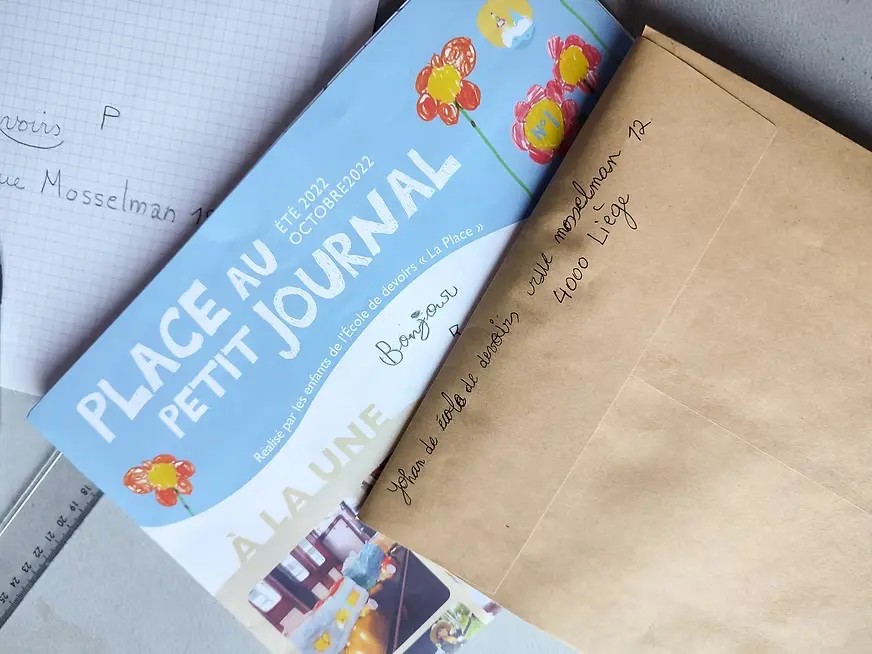 P
Mosselman
N°1
ÉTÉ 2022
OCTOBRE 2022
PLACE AU
PETIT JOURNAL
Réalisé par les enfants de l'École de devoirs « La Place »
Bonjour
À LA UNE
Yohan de école de devoirs, rue mosselman 12
4000 Liège
18
19
20
21
22
23
24
25